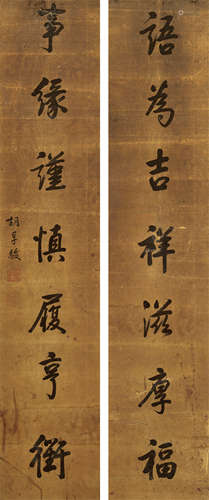 語為吉祥滋厚福
事緣謹慎履亨衢
胡孚駿